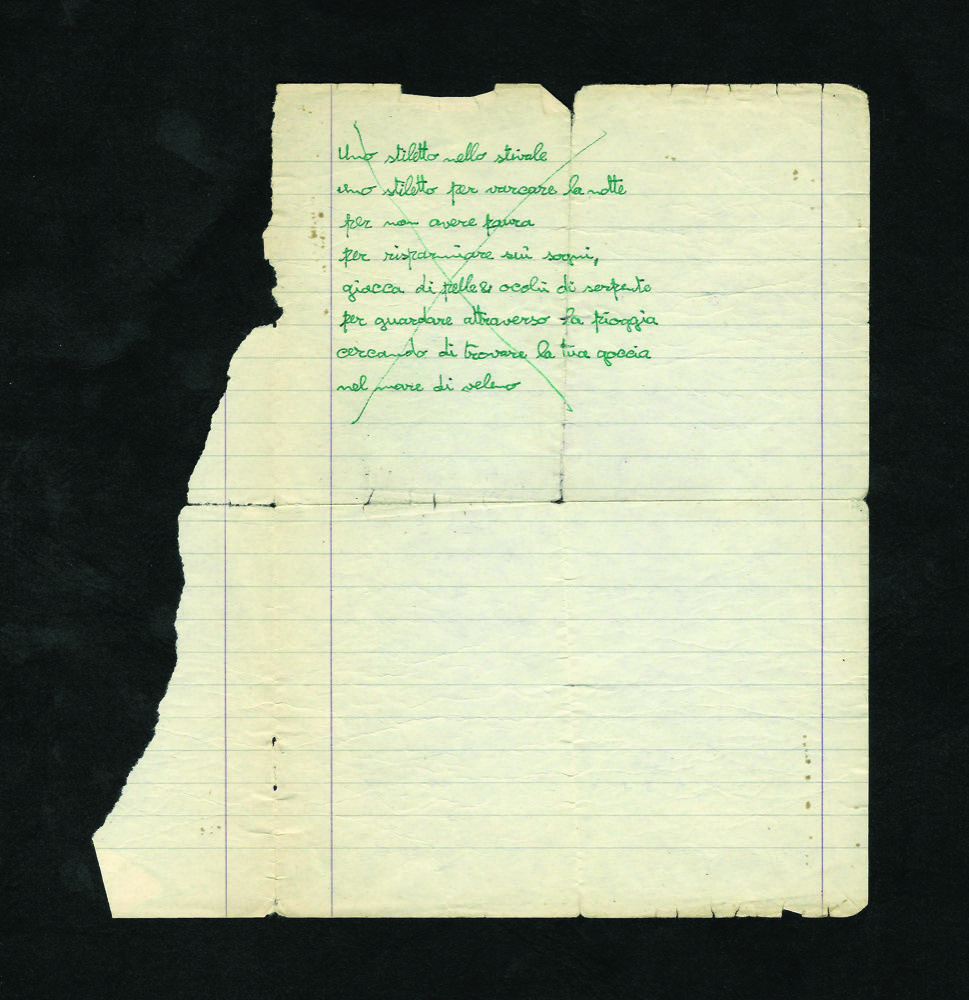 Uno stiletto nello stivale
uno stiletto per varcare la notte
per non avere paura
per risparmiare sui sogni,
giacca di pelle & occhi di serpente
per guardare attraverso la pioggia
cercando di trovare la tua goccia
nel mare di veleno